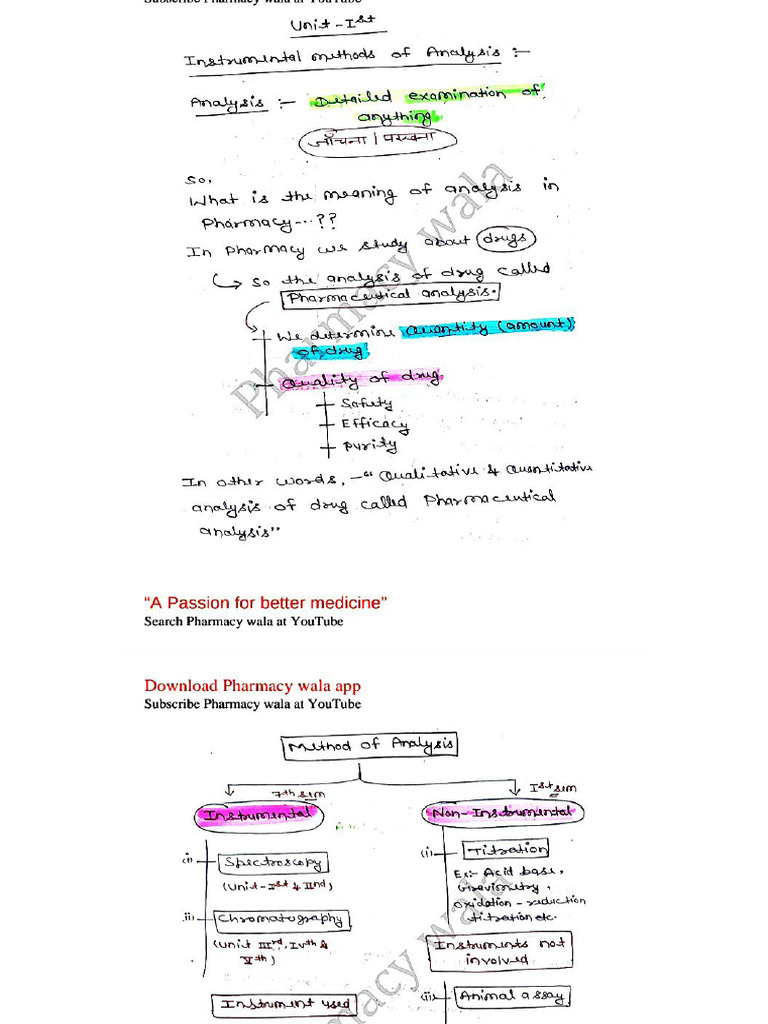 Subscribe Pharmacy wala at YouTube
Unit-Ist
Instrumental methods of Analysis :-
Analysis :- Detailed examination of
anything
जाँचना / परखना
So,
What is the meaning of analysis in
Pharmacy...??
In Pharmacy we study about drugs
So the analysis of drug called
Pharmaceutical analysis.
We determine Quantity (amount)
of drug
Quality of drug
Safety
Efficacy
Purity
In other words, -" Qualitative & Quantitative
analysis of drug called Pharmaceutical
analysis"
Pharmacy wala
“A Passion for better medicine”
Search Pharmacy wala at YouTube
Download Pharmacy wala app
Subscribe Pharmacy wala at YouTube
Method of Analysis
7th sem Ist sem
Instrumental Non-Instrumental
(i) Spectroscopy (i) Titration
(Unit-Ist & IInd) Ex:- Acid base,
Gravimetry,
oxidation-reduction
titration etc.
ii) Chromatography
(Unit IIIrd, IVth &
Vth)
Instruments not
involved
Instrument used (ii) Animal assay
macy wala